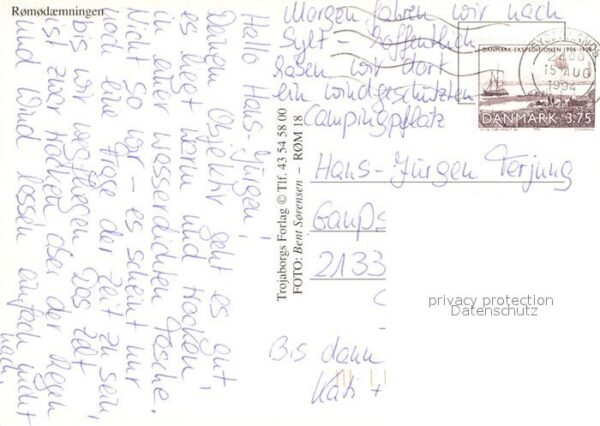 Rømødæmningen
Hallo Hans Jürgen!
Deinem Objektiv geht es gut,
es liegt warm und trocken,
in einer wasserdichten Tasche.
Nicht so wir - es scheint nur
noch eine Frage der Zeit zu sein,
bis wir wegfliegen. Das Zelt
ist zwar trocken aber der Regen
und Wind lassen einfach nicht
nach.
Morgen fahren wir nach
Sylt - hoffentlich
haben wir dort
ein windgeschützten
Campingplatz
Bis dann
Kati +
Trojaborgs Forlag © Tlf. 43 54 58 00
FOTO: Bent Sørensen - RØM 18
DANMARK-EKSPEDITIONEN 1906-1908
15 AUG
1994
DANMARK 3.75
Hans-Jürgen Terjung
2133
privacy protection
Datenschutz